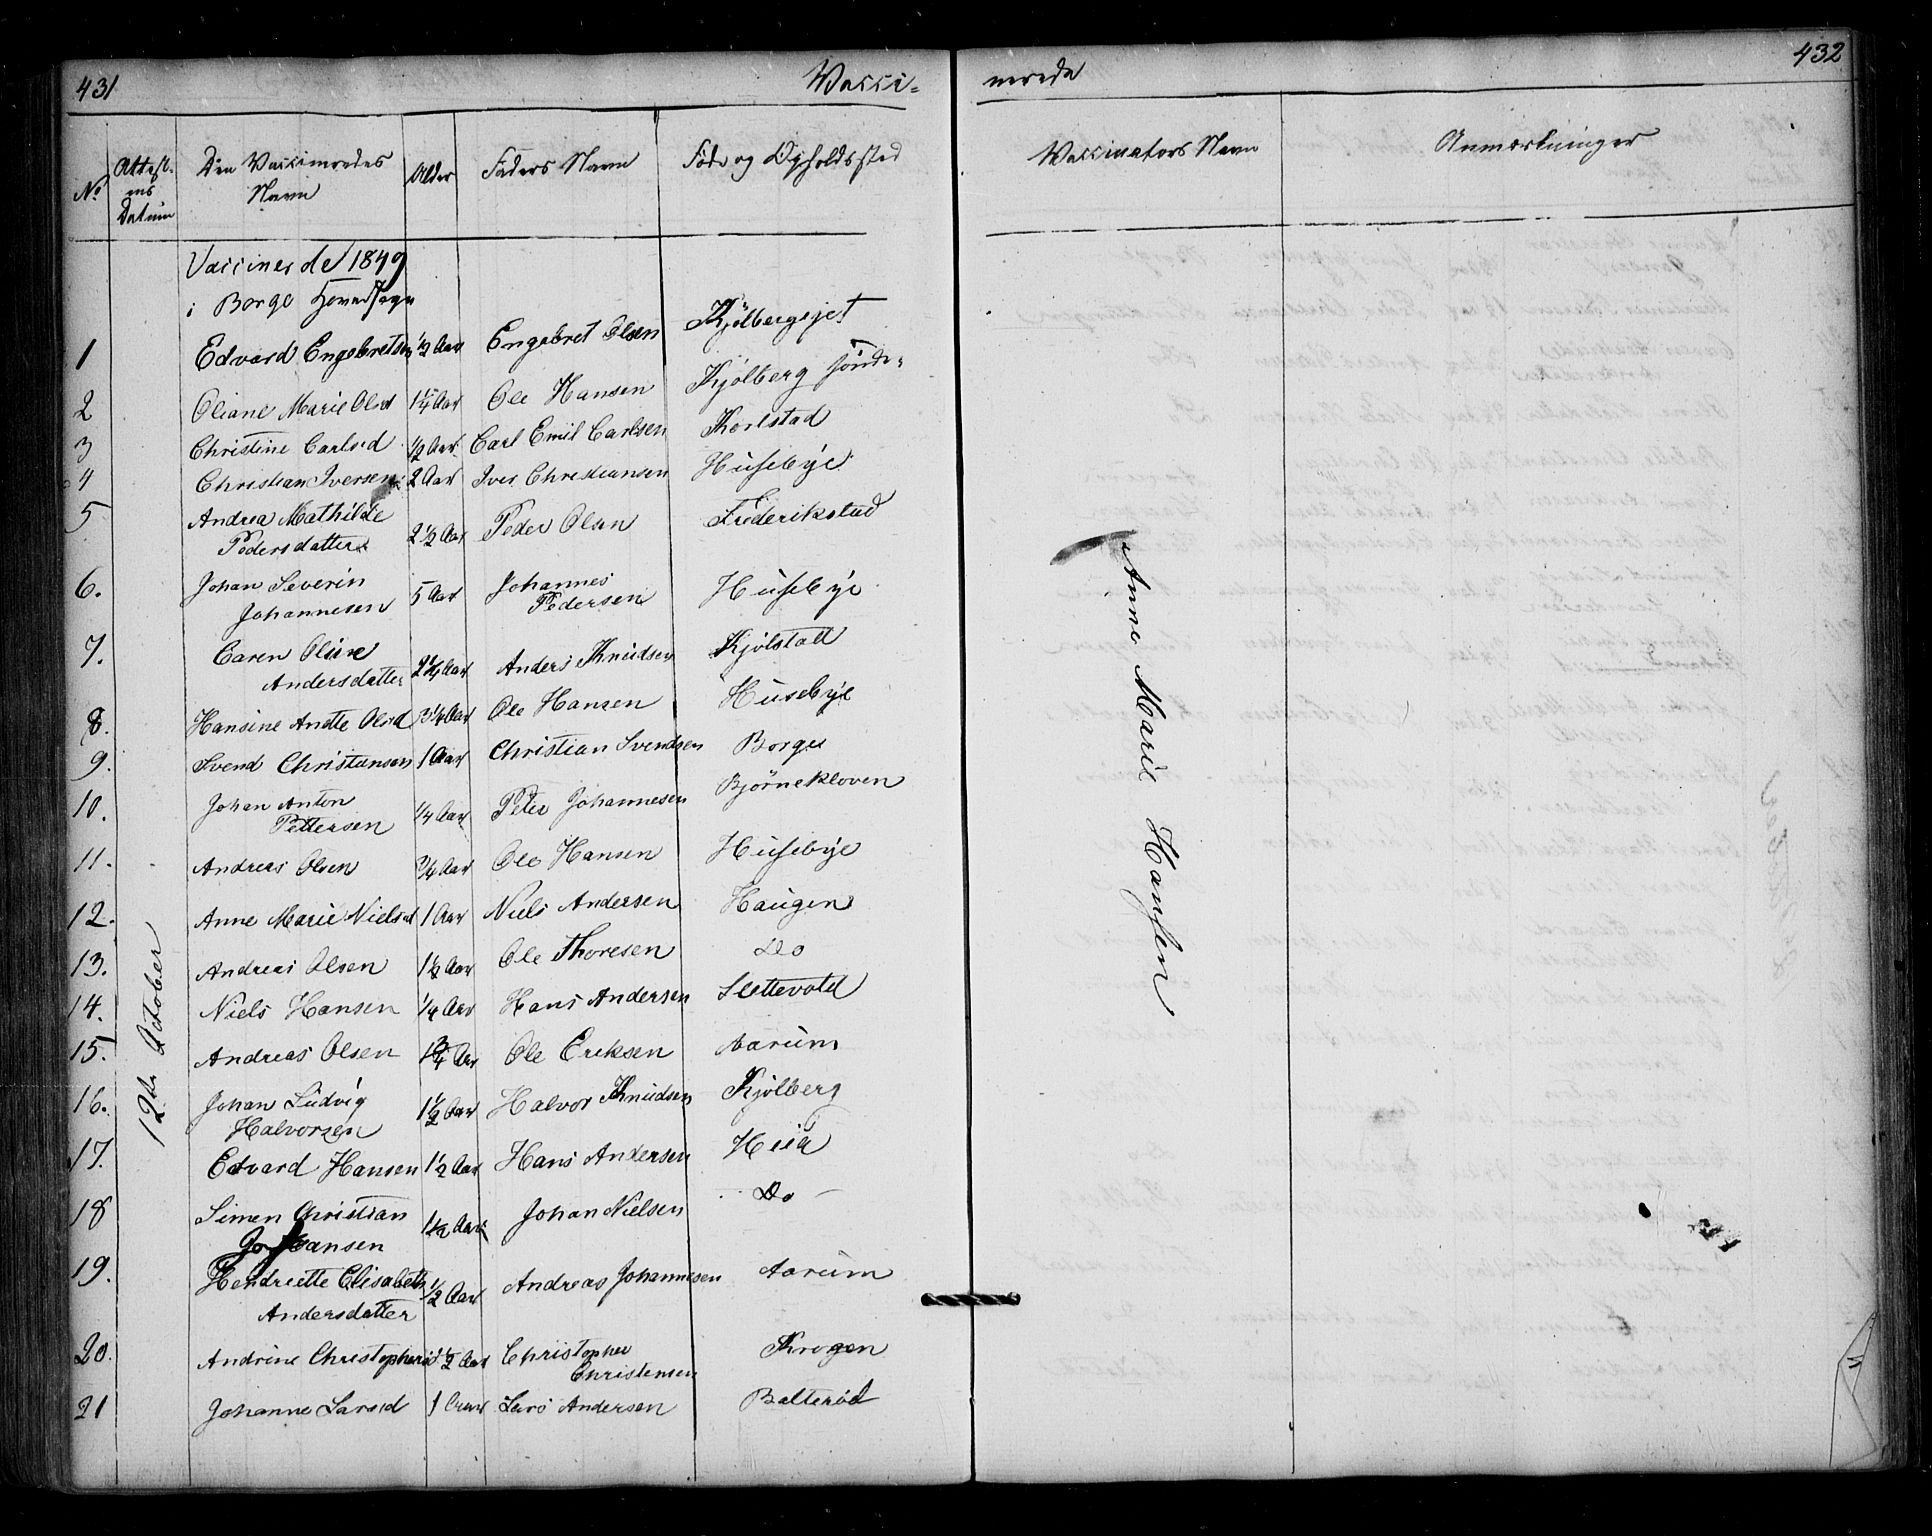 431
Vacci-
nerede
432
No
Attest-
ens
Datum
Den Vaccineredes
Navn
Alder
Faders Navn
Føde og Opholdssted
Vaccinators Navn
Anmærkninger
Vaccinerede 1849
i Borge Hovedsogn
12te October
1 Edvard Engebretsen 1/2 Aar Engebret Olsen Kjölbergejet
2 Oliane Marie Olsd 1 1/4 Aar Ole Hansen Kjölberg söndr
3 Christine Carlsd 1/2 Aar Carl Emil Carlsen Karlstad
4 Christian Iversen 2 Aar Iver Christiansen Husebÿe
5 Andrea Mathilde
Pedersdatter 2 1/2 Aar Peder Olsen Frederikstad
6. Johan Severin
Johannesen 5 Aar Johannes
Pedersen Husebÿe
7. Caren Oline
Andersdatter 2 1/4 Aar Anders Knudsen Kjölstad
8. Hansine Anette Olsd 3 1/4 Aar Ole Hansen Husebÿe
9. Svend Christiansen 1 Aar Christian Svendsen Borge
10. Johan Anton
Pettersen 1/4 Aar Peter Johannesen Björnekloven
11. Andreas Olsen 3/4 Aar Ole Hansen Husebÿe
12. Anne Marie Nielsd 1 Aar Niels Andersen Haugen
13. Andreas Olsen 1 1/2 Aar Ole Thoresen Do
14. Niels Hansen 1/4 Aar Hans Andersen Slettevold
15. Andreas Olsen 1 3/4 Aar Ole Eriksen Aarum
16. Johan Ludvig
Halvorsen 1 1/2 Aar Halvor Knudsen Kjölberg
17. Edvard Hansen 1 1/2 Aar Hans Andersen Heia
18 Simen Christian
Johansen 1 1/2 Aar Johan Nielsen Do
19. Hendriette Elisabeth
Andersdatter 1/2 Aar Andreas Johannesen Aarum
20. Andrine Christophersd 1/2 Aar Christopher
Christensen Krogen
21 Johanne Larsd 1 Aar Lars Andersen Balteröd
Anne Marie Hansen